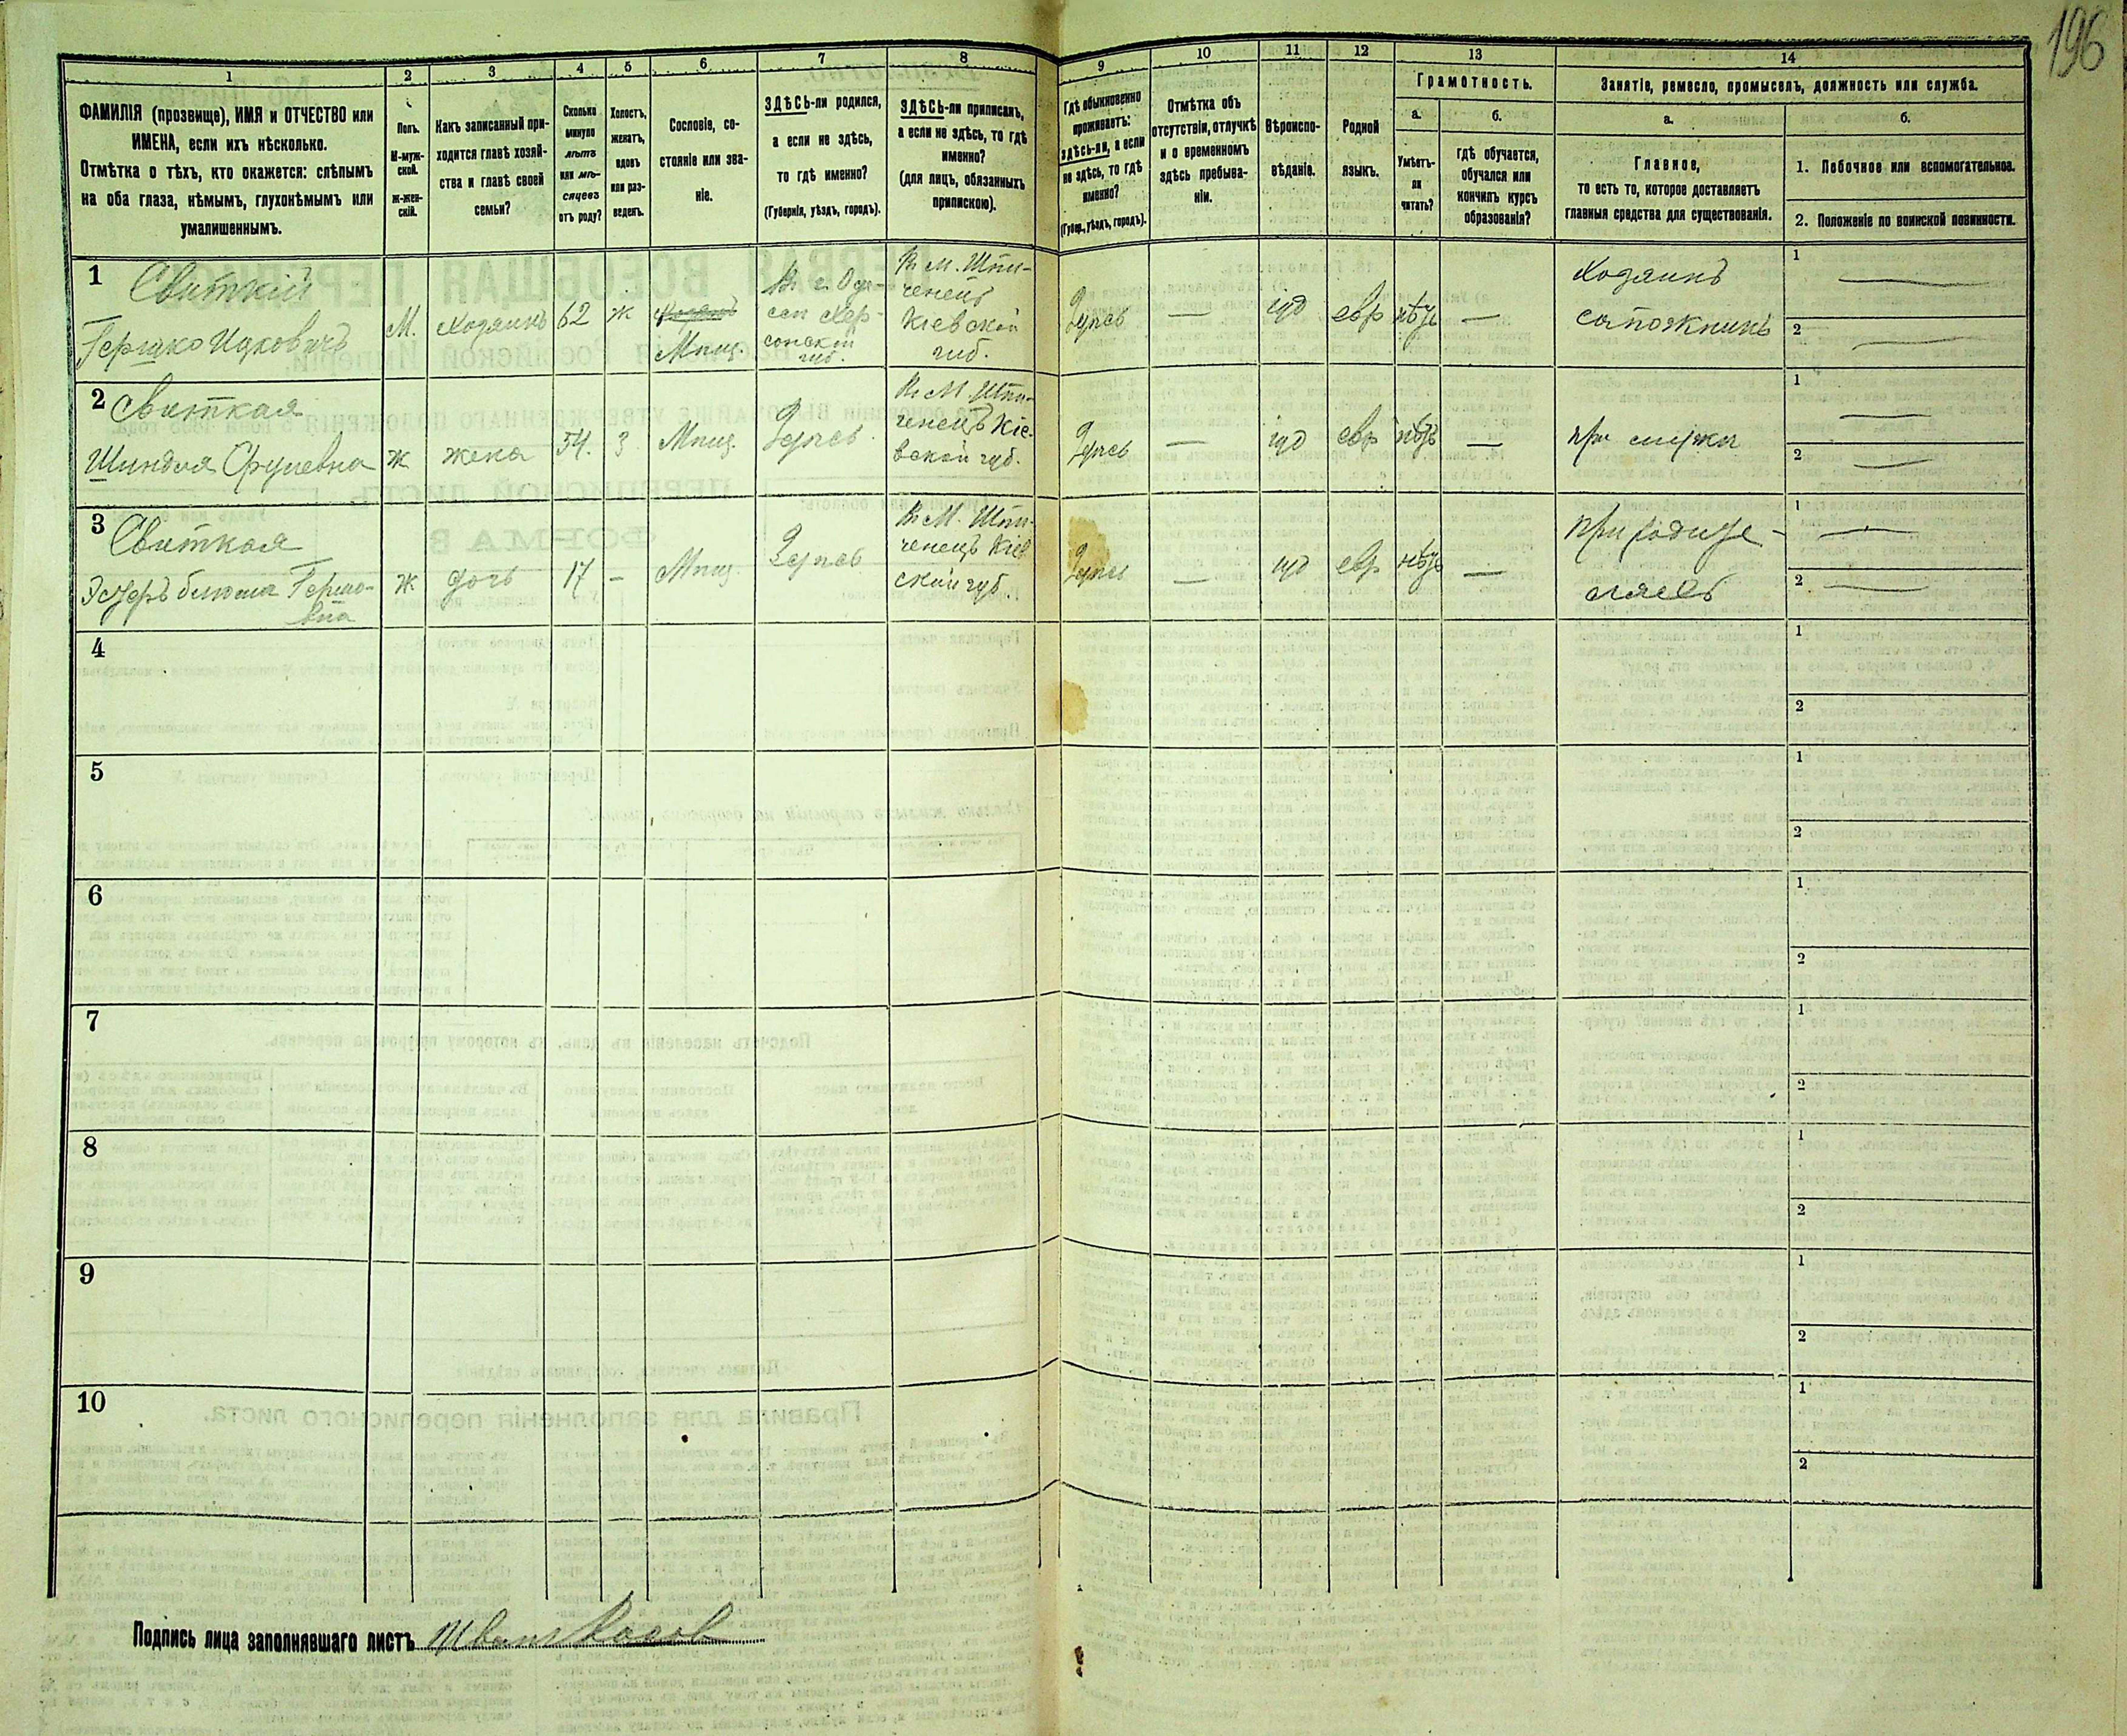 196
1
2
3
4
5
6
7
8
9
10
11
12
13
14
ФАМИЛІЯ (прозвище), ИМЯ и ОТЧЕСТВО или
ИМЕНА, если ихъ нѣсколько.
Отмѣтка о тѣхъ, кто окажется: слѣпымъ
на оба глаза, нѣмымъ, глухонѣмымъ или
умалишеннымъ.
Полъ.
М-муж-
ской.
ж-жен-
скій.
Какъ записанный при-
ходится главѣ хозяй-
ства и главѣ своей
семьи?
Сколько
минуло
лѣтъ
или мѣ-
сяцевъ
отъ роду?
Холостъ,
женатъ,
вдовъ
или раз-
веденъ.
Сословіе, со-
стояніе или зва-
ніе.
ЗДѢСЬ-ли родился,
а если не здѣсь,
то гдѣ именно?
(Губернія, уѣздъ, городъ).
ЗДѢСЬ-ли приписанъ,
а если не здѣсь, то гдѣ
именно?
(для лицъ, обязанныхъ
припискою).
Гдѣ обыкновенно
проживаетъ:
здѣсь-ли, а если
не здѣсь, то гдѣ
именно?
(Губер., уѣздъ, городъ).
Отмѣтка объ
отсутствіи, отлучкѣ
и о временномъ
здѣсь пребыва-
ніи.
Вѣроиспо-
вѣданіе.
Родной
языкъ.
Грамотность.
а.
Умѣетъ-
ли
читать?
б.
гдѣ обучается,
обучался или
кончилъ курсъ
образованія?
Занятіе, ремесло, промыселъ, должность или служба.
а.
Главное,
то есть то, которое доставляетъ
главныя средства для существованія.
б.
1. Побочное или вспомогательное.
2. Положеніе по воинской повинности.
1
Свиткій
Гершко Ицковичъ
М.
Хозяинъ
62
ж
Мѣщ.
Въ г. Одес-
сѣ Хер-
сонской
губ.
Въ М. Шпи-
ченецъ
Кіевской
губ.
Здѣсь
—
іуд
евр
нѣтъ
—
Хозяинъ
сапожникъ
1 —
2 —
2
Свиткая
Шиндля Сруліевна
ж
жена
54.
З
Мѣщ.
Здѣсь.
Въ М. Шпи-
ченецъ Кіе-
вской губ.
Здѣсь
—
іуд
евр
нѣтъ
—
при мужѣ
1 —
2 —
3
Свиткая
Эстеръ Блюма Гершко-
вна
ж
дочь
17
—
Мѣщ
Здѣсь
Въ М. Шпи-
ченецъ Кіев
ской губ.
Здѣсь
—
іуд
евр
нѣтъ
—
при родите-
ляхъ
1 —
2 —
4
1
2
5
1
2
6
1
2
7
1
2
8
1
2
9
1
2
10
1
2
Подпись лица заполнявшаго листъ